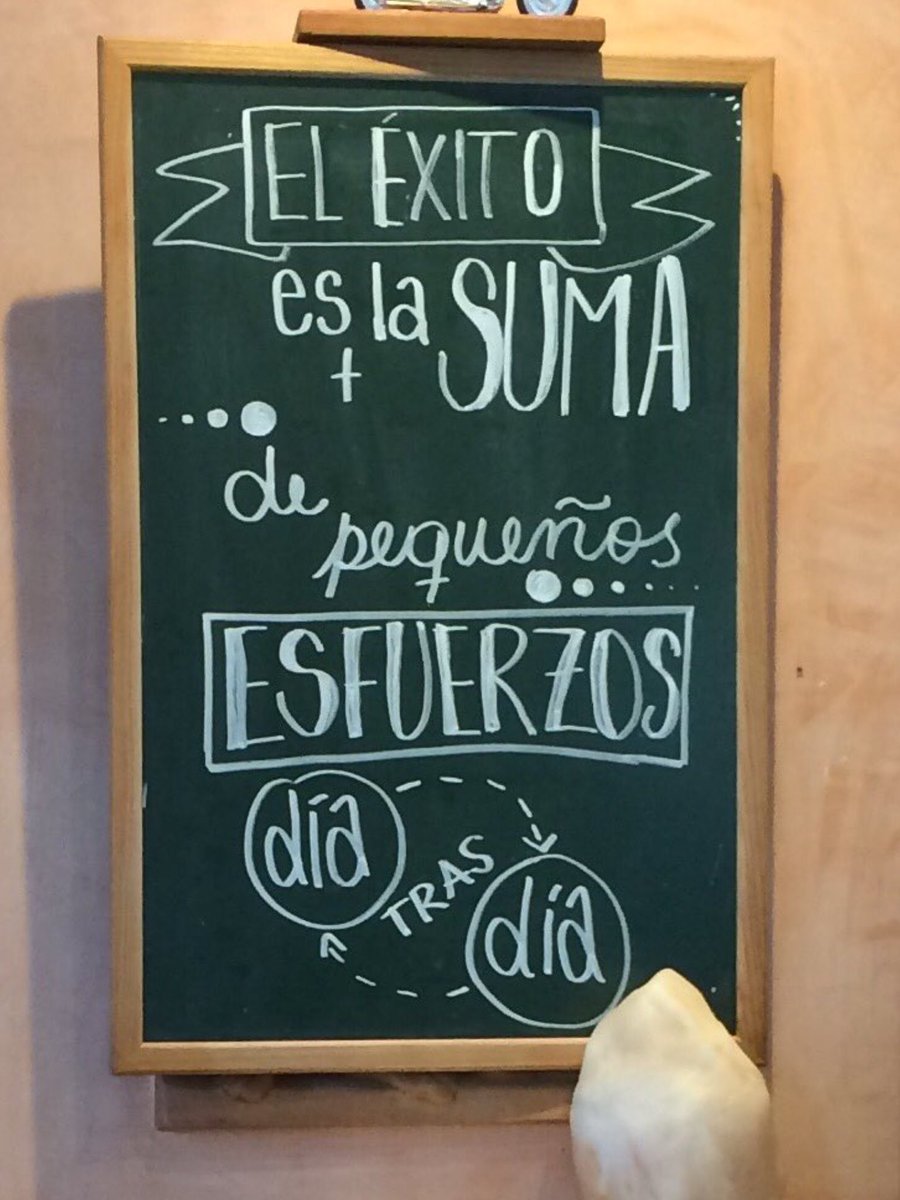 EL ÉXITO
es la SUMA
+
de
pequeños
ESFUERZOS
día
TRAS
día